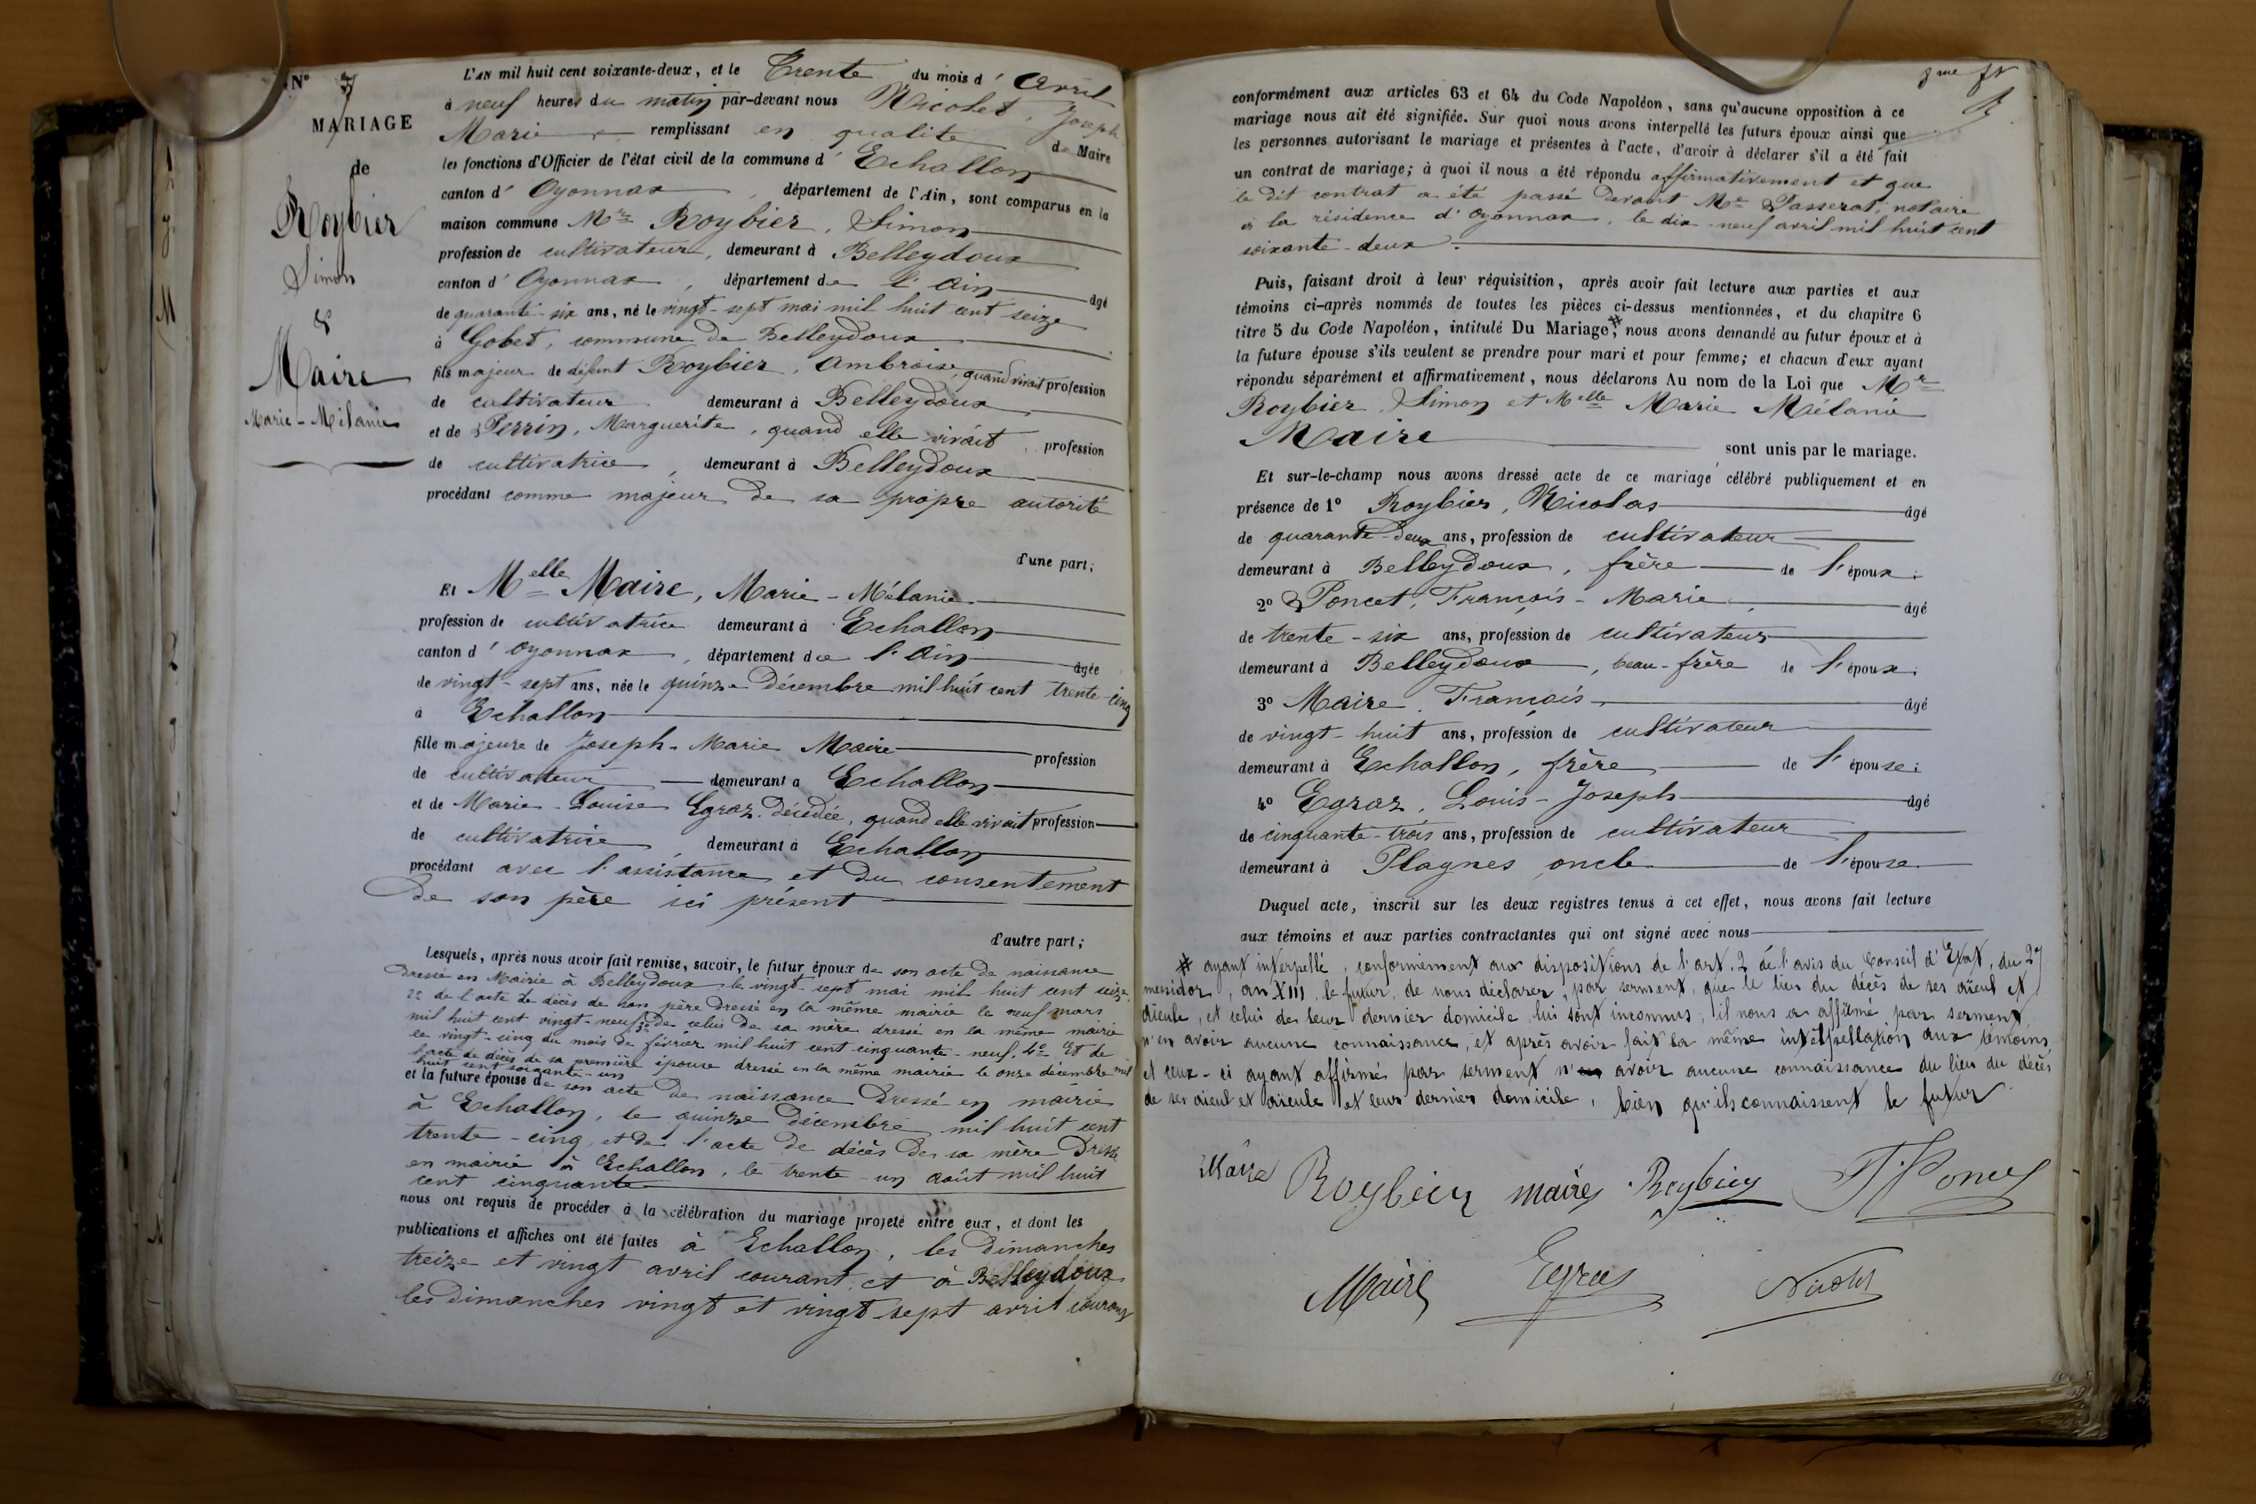 N° 7
MARIAGE
de
Roybier
Simon
&
Maire
Marie-Mélanie
L'AN mil huit cent soixante-deux, et le Trente du mois d'Avril
à neuf heures du matin par-devant nous Nicolet, Joseph
Marie remplissant en qualité de Maire
les fonctions d'Officier de l'état civil de la commune d'Echallon
canton d'Oyonnax, département de l'Ain, sont comparus en la
maison commune Mr Roybier, Simon
profession de cultivateur, demeurant à Belleydoux
canton d'Oyonnax, département de l'Ain âgé
de quarante-six ans, né le vingt-sept mai mil huit cent seize
à Gobet, commune de Belleydoux
fils majeur de défunt Roybier, Ambroise, quand vivait profession
de cultivateur demeurant à Belleydoux
et de Perrin, Marguerite, quand elle vivait, profession
de cultivatrice, demeurant à Belleydoux
procédant comme majeur de sa propre autorité
d'une part;
Et Melle Maire, Marie-Mélanie
profession de cultivatrice demeurant à Echallon
canton d'Oyonnax, département de l'Ain âgée
de vingt-sept ans, née le quinze Décembre mil huit cent trente-cinq
à Echallon
fille majeure de Joseph-Marie Maire profession
de cultivateur demeurant à Echallon
et de Marie-Louise Egraz, décédée, quand elle vivait profession
de cultivatrice, demeurant à Echallon
procédant avec l'assistance et du consentement
de son père ici présent
d'autre part;
Lesquels, après nous avoir fait remise, savoir, le futur époux de son acte de naissance
dressé en Mairie à Belleydoux le vingt-sept mai mil huit cent seize,
2° de l'acte de décès de son père dressé en la même mairie le neuf mars
mil huit cent vingt-neuf, 3° de celui de sa mère dressé en la même mairie
le vingt-cinq du mois de février mil huit cent cinquante-neuf. 4° Et de
l'acte de décès de sa première épouse dressé en la même mairie le onze décembre mil
huit cent soixante-un
et la future épouse de son acte de naissance dressé en mairie
à Echallon, le quinze décembre mil huit cent
trente-cinq, et de l'acte de décès de sa mère dressé
en mairie à Echallon, le trente-un août mil huit
cent cinquante
nous ont requis de procéder à la célébration du mariage projeté entre eux, et dont les
publications et affiches ont été faites à Echallon, les dimanches
treize et vingt avril courant, et à Belleydoux
les dimanches vingt et vingt-sept avril courant
8me
conformément aux articles 63 et 64 du Code Napoléon, sans qu'aucune opposition à ce
mariage nous ait été signifiée. Sur quoi nous avons interpellé les futurs époux ainsi que
les personnes autorisant le mariage et présentes à l'acte, d'avoir à déclarer s'il a été fait
un contrat de mariage; à quoi il nous a été répondu affirmativement et que
le dit contrat a été passé devant Me Passerat, notaire
à la résidence d'Oyonnax, le dix-neuf avril mil huit cent
soixante-deux.
Puis, faisant droit à leur réquisition, après avoir fait lecture aux parties et aux
témoins ci-après nommés de toutes les pièces ci-dessus mentionnées, et du chapitre 6
titre 5 du Code Napoléon, intitulé Du Mariage,# nous avons demandé au futur époux et à
la future épouse s'ils veulent se prendre pour mari et pour femme; et chacun d'eux ayant
répondu séparément et affirmativement, nous déclarons Au nom de la Loi que Mr
Roybier, Simon et Melle Marie Mélanie
Maire sont unis par le mariage.
Et sur-le-champ nous avons dressé acte de ce mariage célébré publiquement et en
présence de 1° Roybier, Nicolas âgé
de quarante-deux ans, profession de cultivateur
demeurant à Belleydoux, frère de l'époux;
2° Poncet, François-Marie, âgé
de trente-six ans, profession de cultivateur
demeurant à Belleydoux, beau-frère de l'époux;
3° Maire, François âgé
de vingt-huit ans, profession de cultivateur
demeurant à Echallon, frère de l'épouse;
4° Egraz, Louis-Joseph âgé
de cinquante-trois ans, profession de cultivateur
demeurant à Plagnes, oncle de l'épouse
Duquel acte, inscrit sur les deux registres tenus à cet effet, nous avons fait lecture
aux témoins et aux parties contractantes qui ont signé avec nous
# ayant interpellé, conformément aux dispositions de l'art. 2 de l'avis du Conseil d'Etat, du 27
messidor, an XIII, le futur, de nous déclarer, par serment, que le lieu du décès de ses aïeul et
aïeule, et celui de leur dernier domicile lui sont inconnus, il nous a affirmé par serment
n'en avoir aucune connaissance, et après avoir fait la même interpellation aux témoins,
et ceux-ci ayant affirmé par serment n' avoir aucune connaissance du lieu du décès
de ses aïeul et aïeule et leur dernier domicile, bien qu'ils connaissent le futur
Maire Roybier maire Roybier F Poncet
Maire Egraz Nicolet